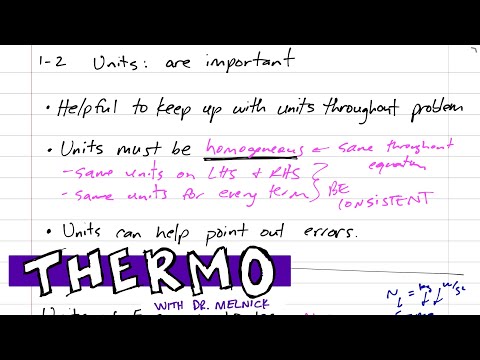 1-2 Units: are important
• Helpful to keep up with units throughout problem
• Units must be homogeneous ← same throughout equation
- same units on LHS & RHS
- same units for every term } BE CONSISTENT
• Units can help point out errors.
THERMO
WITH DR. MELNICK
N = kg m/s²